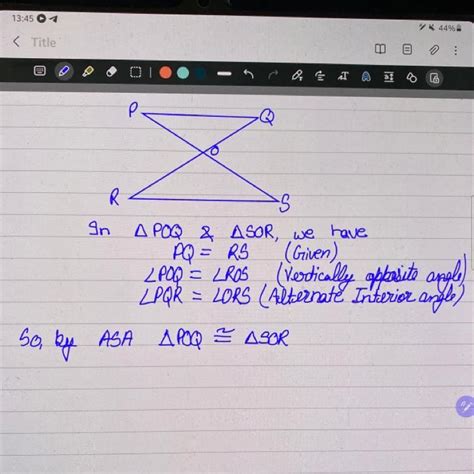 13:45
44%
Title
P
Q
O
R
S
In △POQ & △SOR, we have
PQ = RS (Given)
∠POQ = ∠ROS (Vertically opposite angle)
∠PQR = ∠ORS (Alternate Interior angle)
So, by ASA △POQ ≅ △SOR